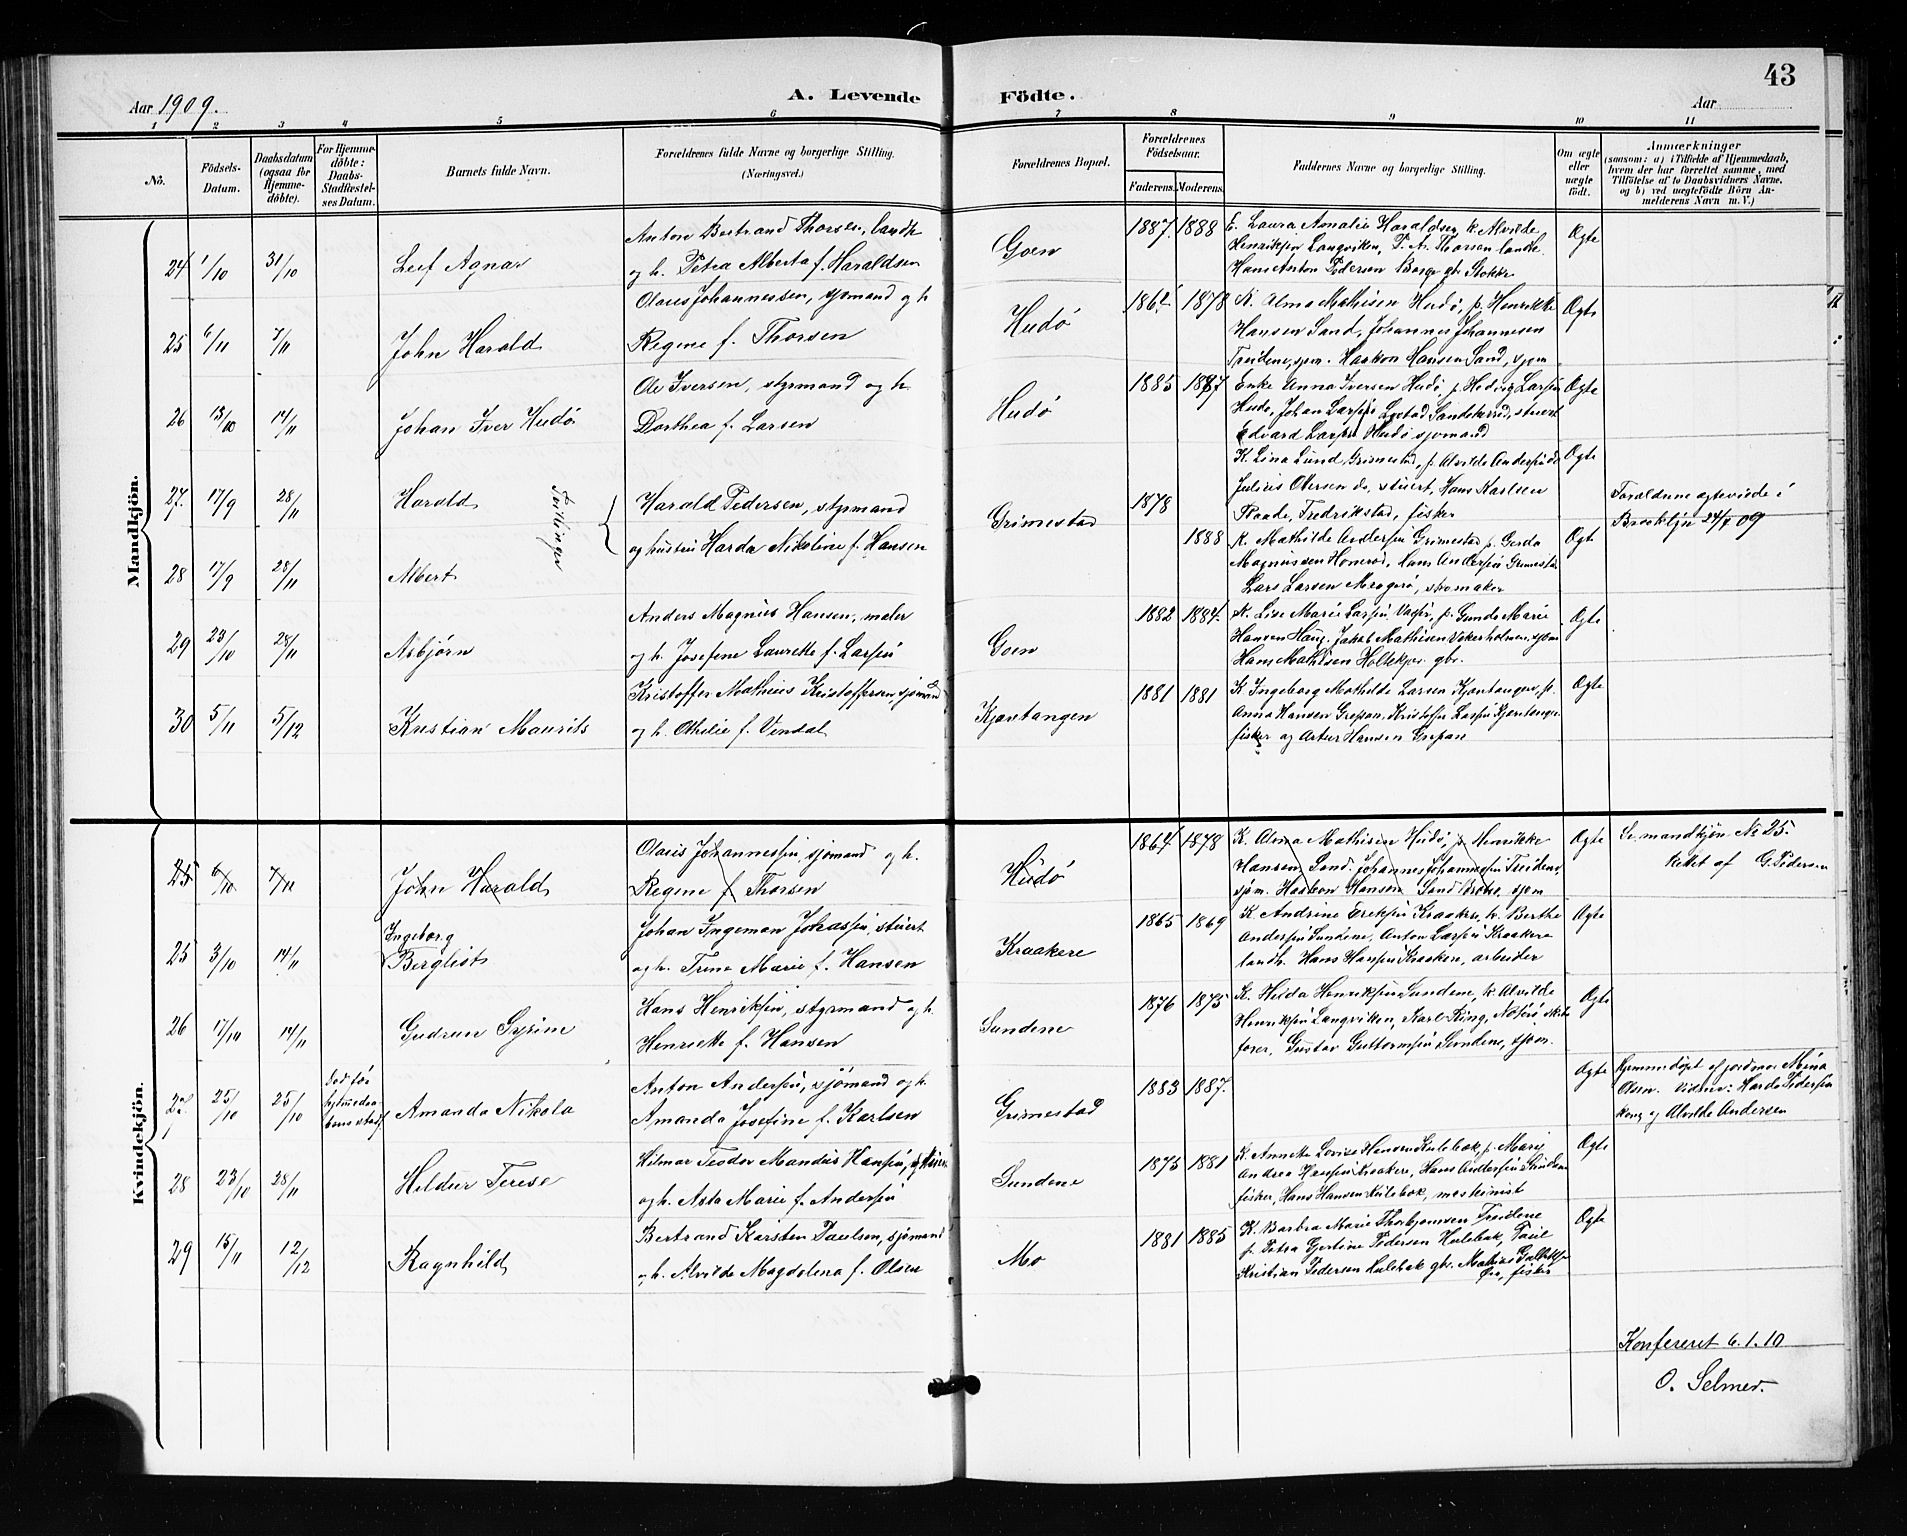 Aar 1909.
A. Levende Födte.
Aar
43
1 2 3 4 5 6 7 8 9 10 11
No.
Födsels-Datum.
Daabsdatum (ogsaa for Hjemme-döbte).
For Hjemme-döbte: Daabs-Stadfæstel-ses Datum.
Barnets fulde Navn.
Forældrenes fulde Navne og borgerlige Stilling.
(Næringsvei.)
Forældrenes Bopæl.
Forældrenes Födselsaar.
Faderens. Moderens.
Faddernes Navne og borgerlige Stilling.
Om ægte eller uægte födt.
Anmærkninger
(saasom: a) i Tilfælde af Hjemmedaab,
hvem der har forrettet samme, med
Tilföielse af to Daabsvidners Navne,
og b) ved uægtefödte Börn An-
melderens Navn m. V.)
Mandkjön.
24 1/10 31/10 Leif Agnar
Anton Bertrand Thorsen, landh
og h. Petra Alberta f. Haraldsen
Goen 1887. 1888
E. Laura Amalie Haraldsen, k. Alvilde
Henriksen Langviken, P. A. Thorsen landh.
Hans Anton Pedersen Borge gbr Stokke
Ægte
25 6/11 7/11 John Harald
Olaus Johannessen, sjømand og h
Regine f. Thorsen
Hudø 1864 1878
K. Alma Mathisen Hudø, p. Henrikke
Hansen Sand, Johannes Johannesen
Treidene, sjøm. Haakon Hansen Sand, sjøm
Ægte
26 13/10 14/11 Johan Iver Hudø
Ole Iversen, styrmand og h
Dorthea f. Larsen
Hudø 1885 1887
Enke Anna Iversen Hudø, p. Hedvig Larsen
Hudø, Johan Larsen Lystad Sandekjærred, stuert
Edvard Larsen Hudø sjømand
Ægte
27. 17/9 28/11 Harald
Tvillinger
Harald Pedersen, styrmand
og hustru Harda Nikoline f. Hansen
Grimestad 1878
K. Lina Lund Grimestad, p. Alvilde Andersen do
Julius Olsersen do, stuert, Hans Karlsen
Raade, Fredrikstad, fisker
Ægte
Forældrene ægteviede i
Brooklyn 24/7 09
28 17/9 28/11 Albert
1888
K. Mathilde Andersen Grimestad p. Gerda
Magnussen Honerød, Hans Andersen Grimestad
Lars Larsen Magerø, skomaker
Ægte
29 23/10 28/11 Asbjørn
Anders Magnus Hansen, maler
og h. Josefine Laurette f. Larsen
Goen 1882 1884.
K. Lise Marie Larsen Vasser, p. Gunda Marie
Hansen Haug. Jakob Mathisen Vekerholmen, sjøm
Hans Mathisen Holtekjær. gbr.
Ægte
30 5/11 5/12 Kristian Maurits
Kristoffer Mathius Kristoffersen, sjømand
og h. Othilie f. Vendal
Kjøntangen 1881 1881
K. Ingeborg Mathilde Larsen Kjøntangen, p.
Anna Hansen Grepan, Kristoffer Larsen Kjøntangen
fisker og Artur Hansen Grepan
Ægte
Kvindekjön.
25 6/10 7/11 John Harald
Olaus Johannessen, sjømand og h.
Regine f. Thorsen
Hudø 1864 1878
K. Alma Mathisen Hudø, p Henrikke
Hansen Sand. Johannes Johannessen Treidene,
sjøm. Haakon Hansen Sand sjøm
Ægte
Se mandkjøn No 25.
rettet af G. Pedersen
25 3/10 14/11 Ingeborg
Bergliot
Johan Ingeman Johansen, stuert
og h. Trine Marie f. Hansen
Kraakere 1865 1869
K. Andrine Eriksen Kraakere, k. Berthe
Andersen Sundene, Anton Larsen Kraakere
landh. Hans Hansen Kraakere, arbeider
Ægte
26 17/10 14/11 Gudrun Syrine
Hans Henriksen, styrmand og h.
Henriette f. Hansen
Sundene 1876 1875
K. Hilda Henriksen Sundene, k. Alvilde
Henriksen Langviken, Karl Ring, Nøterø skibs
fører, Gustav Guttormsen Sundene, sjøm.
Ægte
27 25/10 25/10 Død før
hjemmedaa-
bens stadf.
Amanda Nikola
Anton Andersen, sjømand og h.
Amanda Josefine f. Karlsen
Grimestad 1883 1887.
Ægte
Hjemmedøpt af jordmor Mina
Olsen. Vidner: Harda Pedersen
kone og Alvilde Andersen
28 23/10 28/11 Hildur Terese
Hilmar Teodor Mandius Hansen,
og h. Asta Marie f. Andersen
Sundene 1875 1881
K. Annette Lovise Hansen Kulebak, p. Marie
Andrea Hansen Kraakere, Hans Andersen Sundene
fisker, Hans Hansen Kulebak, maskinist
Ægte
29 15/11 12/12 Ragnhild
Bertrand Karsten Paulsen, sjømand
og h. Alvilde Magdalena f. Olsen
Mo 1881 1885
K. Barbra Marie Thorbjørnsen Treidene
p. Petra Gertine Pedersen Hulebak, Paul
Kristian Pedersen Hulebak gbr. Mathias
Øra, fisker
Ægte
Konfereret 6.1.10
O. Selmer.